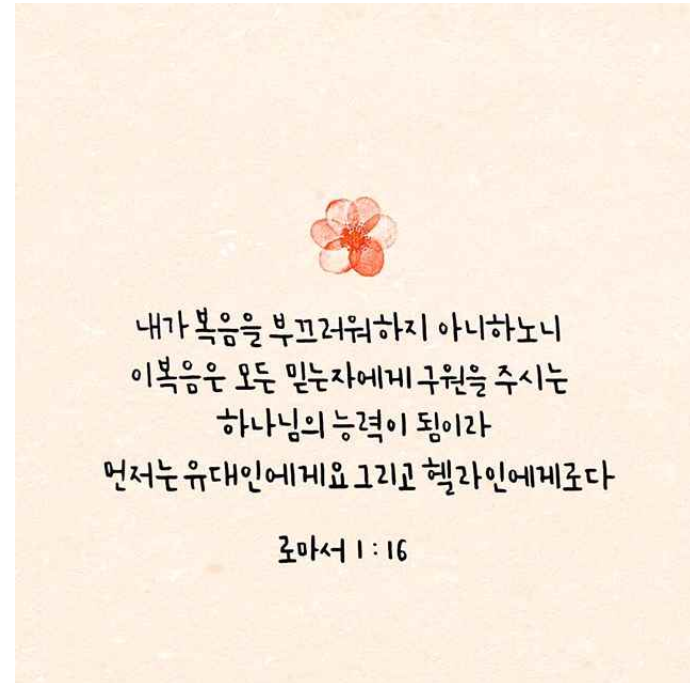 내가 복음을 부끄러워하지 아니하노니
이복음은 모든 믿는자에게 구원을 주시는
하나님의 능력이 됨이라
먼저는 유대인에게요 그리고 헬라인에게로다
로마서 1 : 16